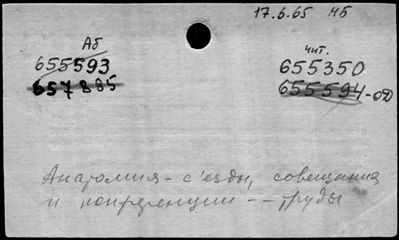 17.6.65 НБ
Аб
чит.
655593
655350
657885
655594-оД
Анатомия - с'езды, совещания
и конференции -- труды